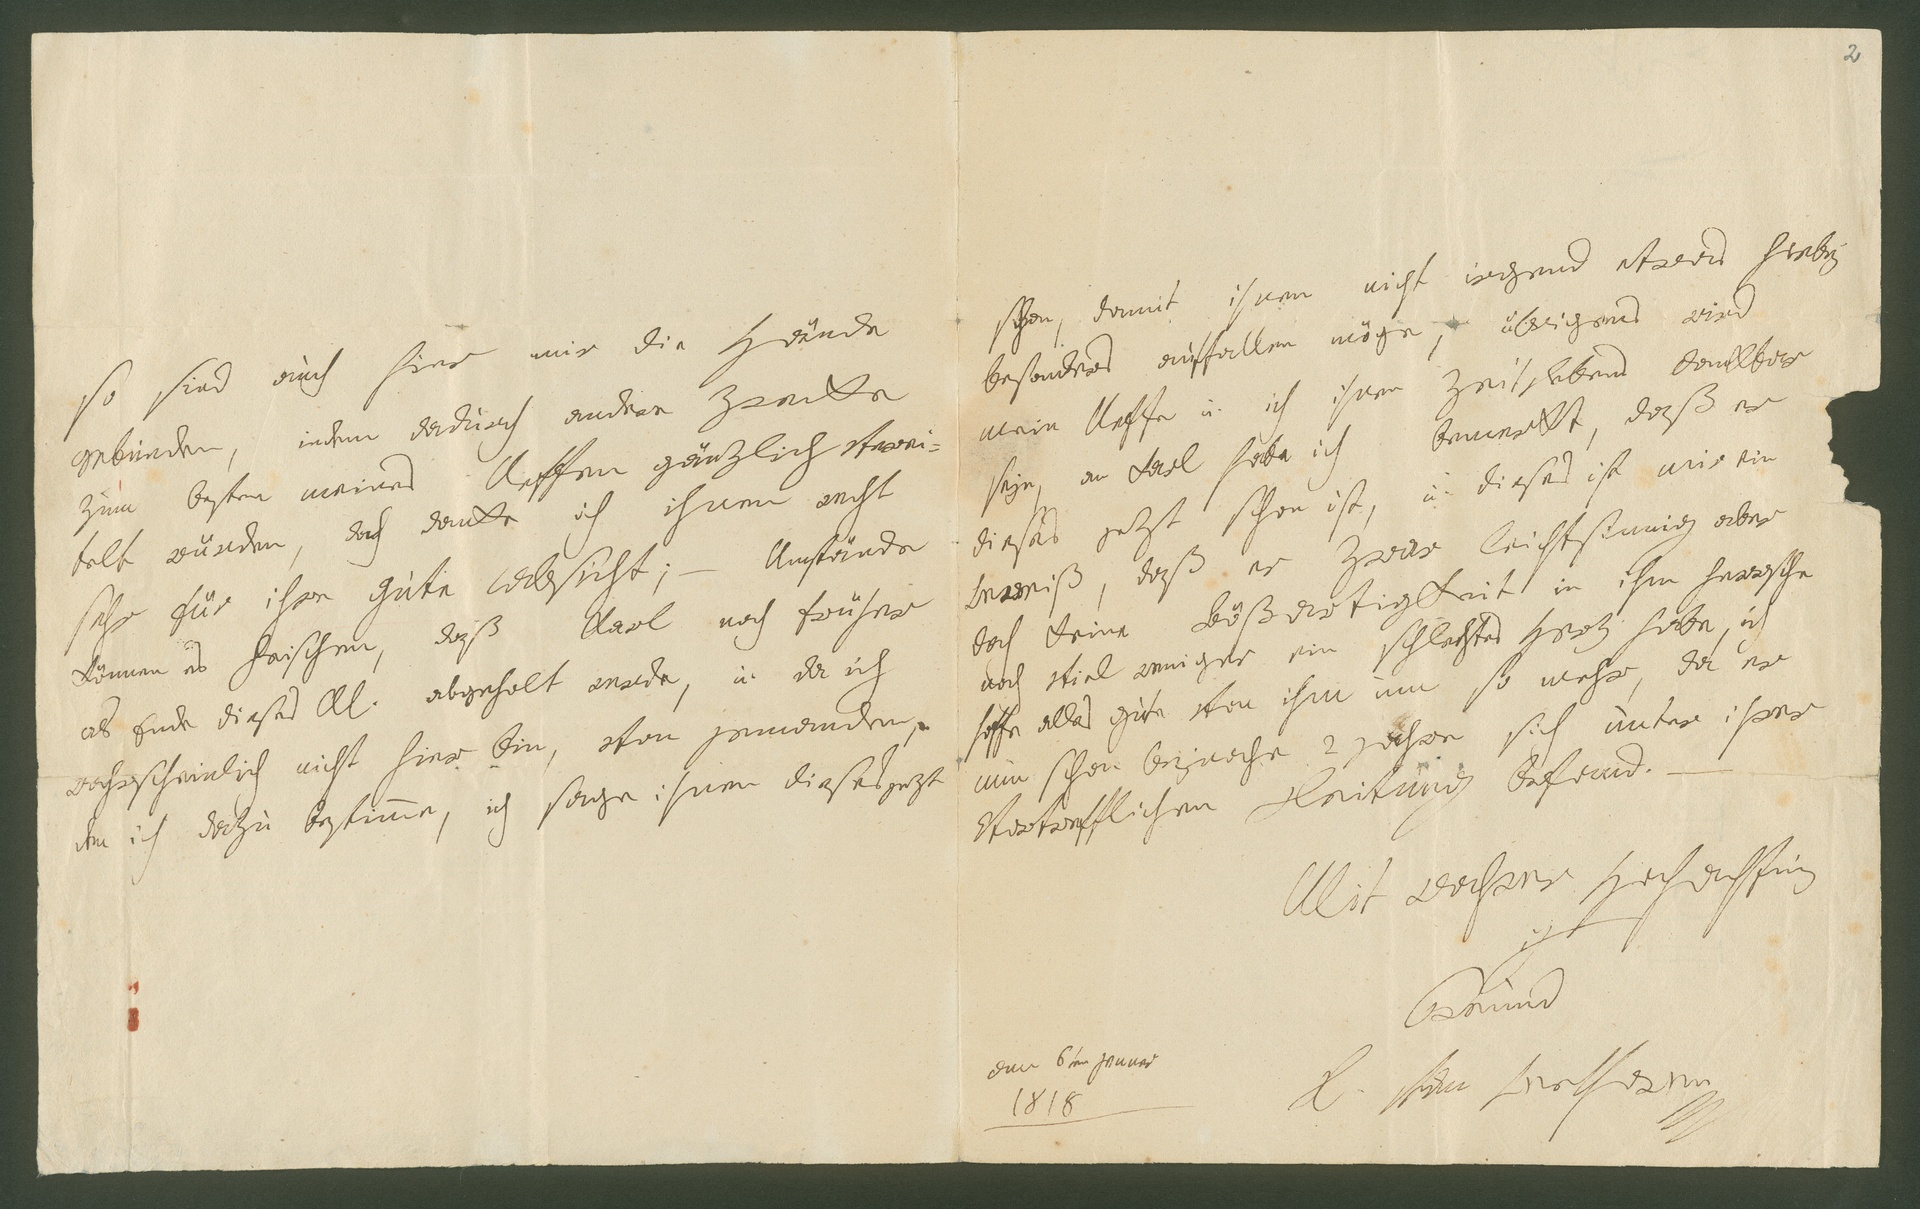 so sind auch hier mir die Hände
gebunden, indem dadurch andere Zwekke
zum besten meines Neffen gänzlich verei=
telt würden, doch danke ich ihnen recht
sehr für ihre gute Absicht; – Umstände
können es heischen, daß Karl noch früher
als Ende dieses M. abgeholt werde, u. da ich
wahrscheinlich nicht hier bin, von jemanden,
den ich dazu bestimme, ich sage ihnen dieses jezt
2
schon, damit ihnen nicht irgend etwas hiebey
besonders auffallen möge, übrigens wird
mein Neffe u. ich ihnen Zeitlebens dankbar
seyn, an Karl habe ich bemerkt, daß er
dieses jezt schon ist, u. dieses ist mir ein
beweiß, daß er zwar leichtsinnig aber
doch keine Bößartigkeit in ihm herrsche
noch viel weniger ein schlechtes Herz habe, ich
hoffe alles gute von ihm um so mehr, da er
nun schon beynahe 2 jahre sich unter ihrer
Vortrefflichen Leitung befand. —
Mit wahrer Hochachtung
ihr
Freund
L. van Beethoven
am 6ten januar
1818